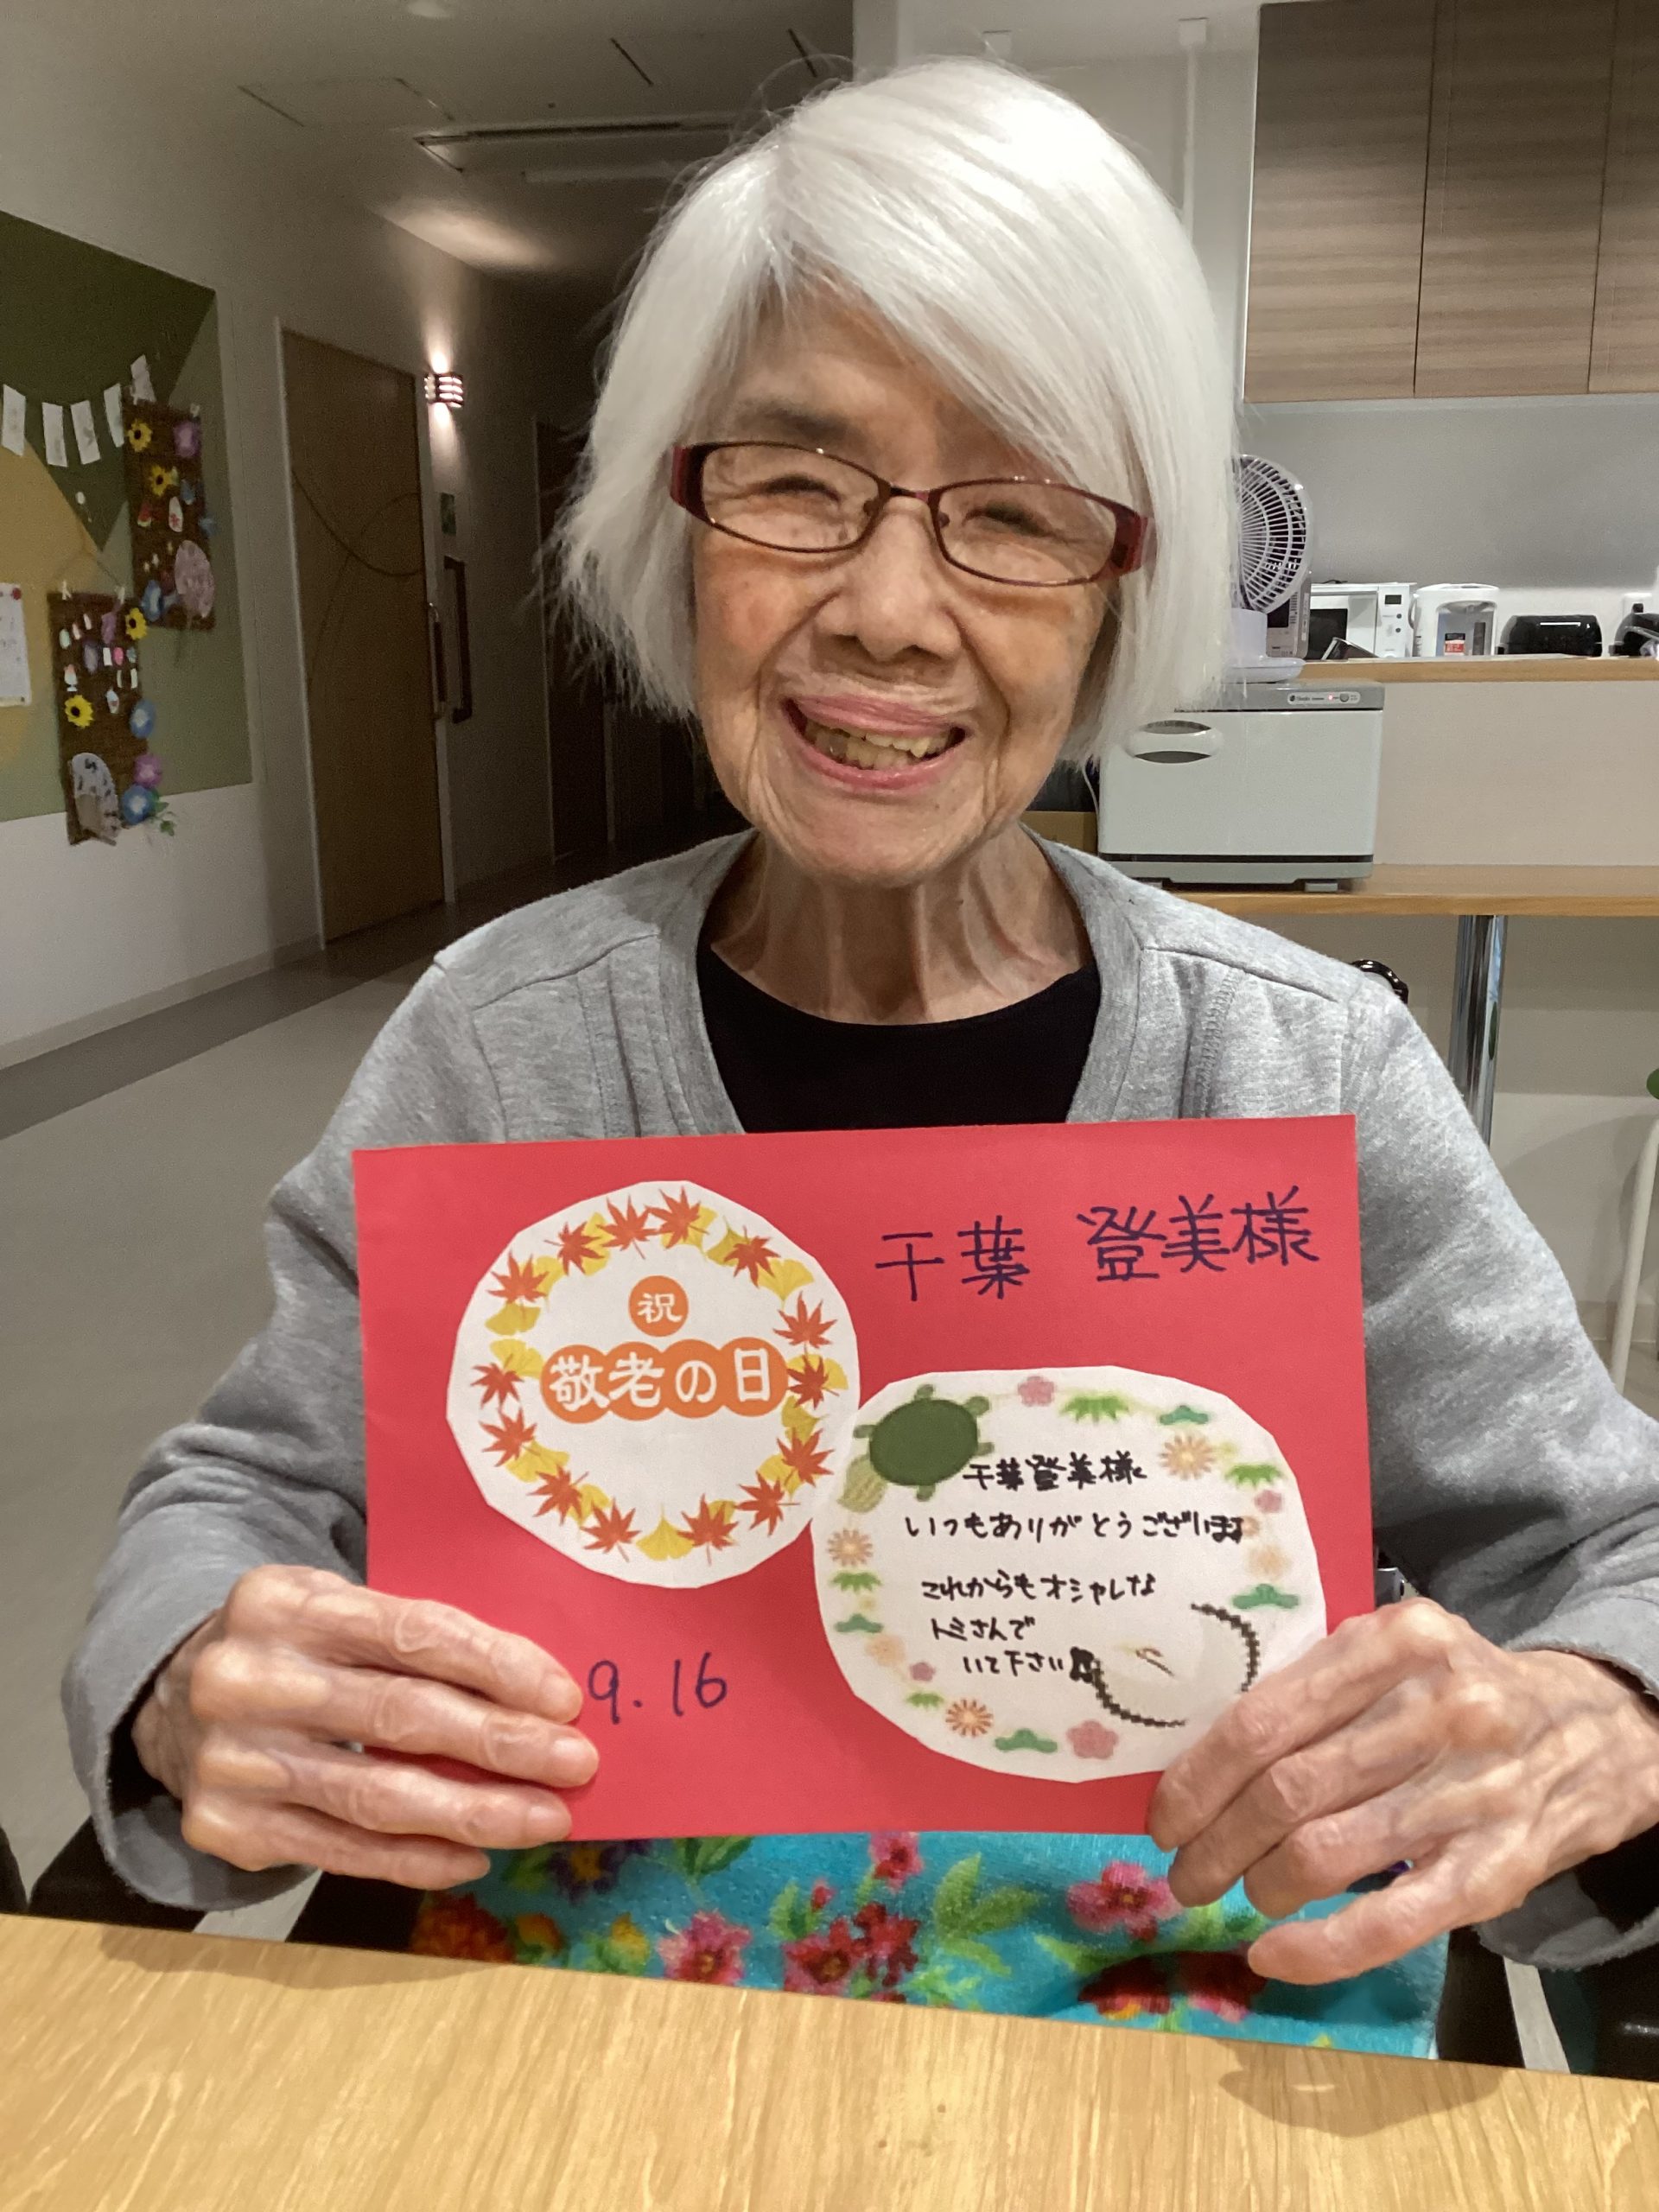 千葉 登美様
祝
敬老の日
千葉登美様
いつもありがとうございます
これからもオシャレな
トミさんで
いて下さい
9.16